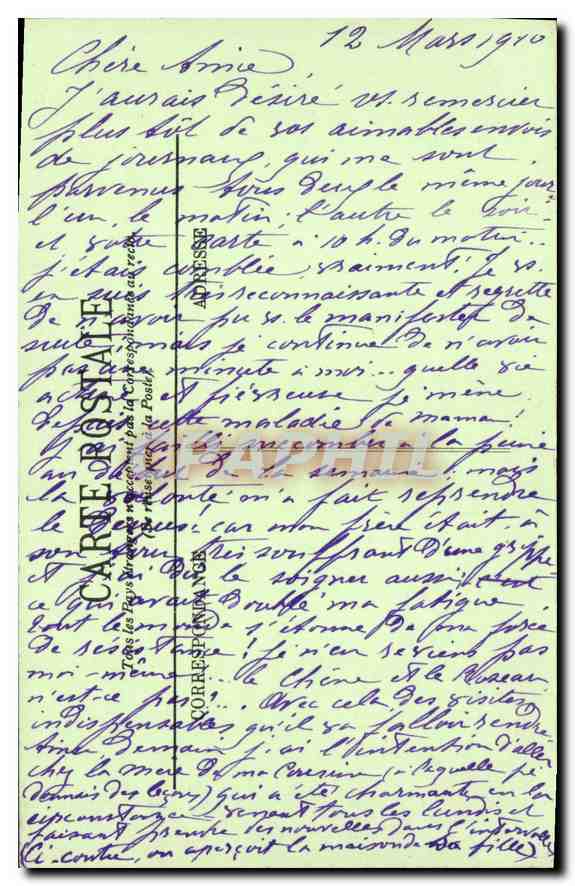 12 Mars 1910
Chère Amie,
J'aurais désiré vs. remercier
plus tôt de vos aimables envois
de journaux, qui me sont
parvenus tous deux le même jour
l'un le matin, l'autre le soir
et votre carte à 10 h. du matin..
j'étais comblée vraiment! Je vs.
en suis très reconnaissante et regrette
de n'avoir pu vs. le manifester de
suite, mais je continue de n'avoir
pas une minute à moi... quelle vie
et fiévreuse je mène
depuis cette maladie de mama!
succomber à la peine
au début de la semaine, mais
la volonté m'a fait reprendre
le dessus! car mon frère était à
son tour très souffrant d'une grippe
et j'ai dû le soigner aussi,
ce qui avait doublé ma fatigue
tout le monde s'étonne de ma force
de résistance! je n'en reviens pas
moi-même... le Chêne et le Roseau
n'est-ce pas?... Avec cela, des visites
indispensables qu'il va falloir rendre
Ainsi demain j'ai l'intention d'aller
chez la mère de ma (à laquelle je
donnais des leçons) qui a été charmante en la
circonstance venant tous les lundis et
faisant prendre des nouvelles dans l'intervalle
(Ci-contre, on aperçoit la maison de sa fille)
CARTE POSTALE
Tous les Pays étrangers n'acceptent pas la Correspondance au recto
(Se renseigner à la Poste)
CORRESPONDANCE
ADRESSE
DELCAMPE